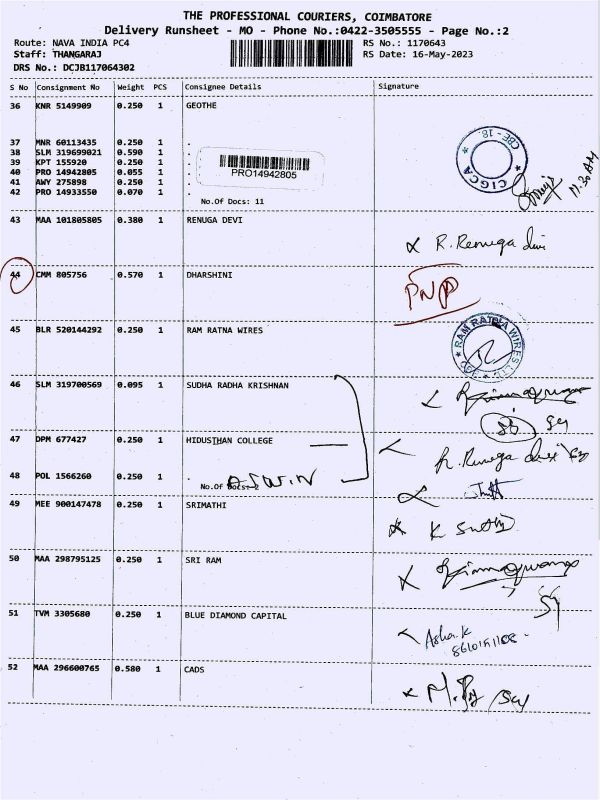 THE PROFESSIONAL COURIERS, COIMBATORE
Delivery Runsheet - MO - Phone No.:0422-3505555 - Page No.:2
Route: NAVA INDIA PC4 RS No.: 1170643
Staff: THANGARAJ RS Date: 16-May-2023
DRS No.: DCJB117064302
S No Consignment No Weight PCS Consignee Details Signature
36 KNR 5149909 0.250 1 GEOTHE
37 MNR 60113435 0.250 1 .
38 SLM 319699021 0.590 1 .
39 KPT 155920 0.250 1 .
40 PRO 14942805 0.055 1 .
41 AWY 275898 0.250 1 .
42 PRO 14933550 0.070 1 .
PRO14942805
CBE - 18.
CIGCA
11.30 AM
No.Of Docs: 11
43 MAA 101805805 0.380 1 RENUGA DEVI
R. Renuga devi
44 CMM 805756 0.570 1 DHARSHINI
PNP
45 BLR 520144292 0.250 1 RAM RATNA WIRES
RAM RATNA WIRES LTD.
46 SLM 319700569 0.095 1 SUDHA RADHA KRISHNAN
47 DPM 677427 0.250 1 HIDUSTHAN COLLEGE
R. Renuga devi
48 POL 1566260 0.250 1 .
No.Of Docs: 2
ASWIN
49 MEE 900147478 0.250 1 SRIMATHI
50 MAA 298795125 0.250 1 SRI RAM
51 TVM 3305680 0.250 1 BLUE DIAMOND CAPITAL
Asha.K
52 MAA 296600765 0.580 1 CADS